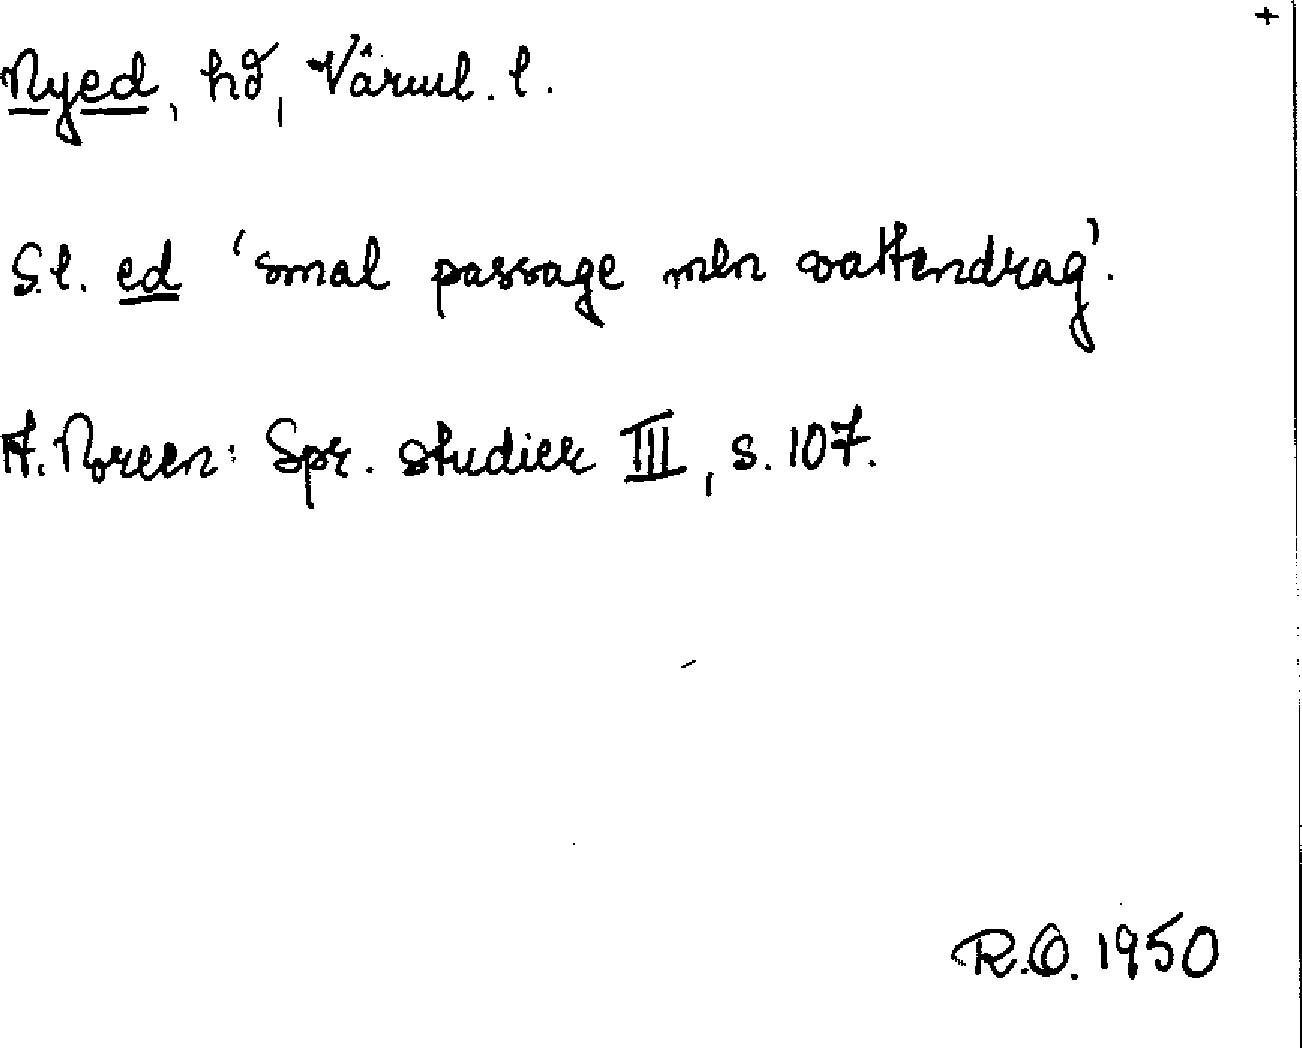 +
Nyed, hd, Värml. l.
S.l. ed 'smal passage mln vattendrag'.
A. Noreen: Spr. studier III, s. 107.
R.O. 1950